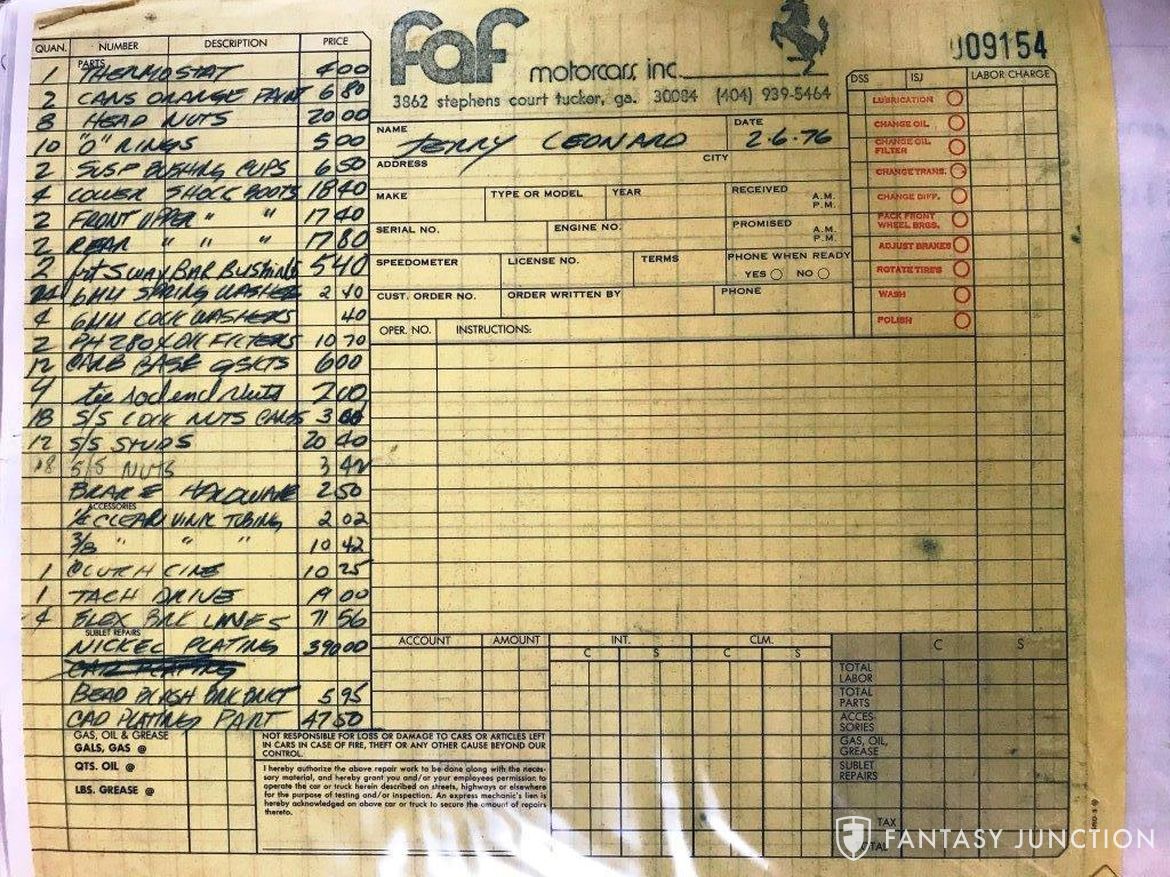 faf motorcars, inc.
3862 stephens court tucker, ga. 30084 (404) 939-5464
009154
QUAN. NUMBER DESCRIPTION PRICE
PARTS
1 THERMOSTAT 4 00
2 CANS ORANGE PAINT 6 80
8 HEAD NUTS 20 00
10 "O" RINGS 5 00
2 SUSP BUSHING CUPS 6 50
4 LOWER SHOCK BOOTS 18 40
2 FRONT UPPER " " 17 40
2 REAR " " " 17 80
2 frt SWAY BAR BUSHING 5 40
6MM SPRING WASHER 2 40
4 6MM LOCK WASHERS 40
2 PH2804 OIL FILTERS 10 70
12 CARB BASE GSKTS 6 00
4 tie rod end Nuts 2 00
18 S/S LOCK NUTS CARBS 3
12 S/S STUDS 20 40
18 S/S NUTS 3 42
BRAKE HARDWARE 2 50
ACCESSORIES
1/4 CLEAR VINYL TUBING 2 02
3/8 " " " 10 42
1 CLUTCH LINE 10 25
1 TACH DRIVE 19 00
4 FLEX BRK LINES 71 56
SUBLET REPAIRS
NICKEL PLATING 390 00
CAD PLATING
BEAD BLASH BRK DUCT 5 95
CAD PLATING PART 47 50
GAS, OIL & GREASE
GALS, GAS @
QTS. OIL @
LBS. GREASE @
NAME TERRY LEONARD DATE 2-6-76
ADDRESS CITY
MAKE TYPE OR MODEL YEAR RECEIVED A.M. P.M.
SERIAL NO. ENGINE NO. PROMISED A.M. P.M.
SPEEDOMETER LICENSE NO. TERMS PHONE WHEN READY
YES NO
CUST. ORDER NO. ORDER WRITTEN BY PHONE
DSS ISJ LABOR CHARGE
LUBRICATION
CHANGE OIL
CHANGE OIL FILTER
CHANGE TRANS.
CHANGE DIFF.
PACK FRONT WHEEL BRGS.
ADJUST BRAKES
ROTATE TIRES
WASH
POLISH
OPER. NO. INSTRUCTIONS:
ACCOUNT AMOUNT INT. CLM.
C S C S C S
TOTAL LABOR
TOTAL PARTS
ACCESSORIES
GAS, OIL, GREASE
SUBLET REPAIRS
TAX
NOT RESPONSIBLE FOR LOSS OR DAMAGE TO CARS OR ARTICLES LEFT
IN CARS IN CASE OF FIRE, THEFT OR ANY OTHER CAUSE BEYOND OUR
CONTROL.
I hereby authorize the above repair work to be done along with the neces-
sary material, and hereby grant you and/or your employees permission to
operate the car or truck herein described on streets, highways or elsewhere
for the purpose of testing and/or inspection. An express mechanic's lien is
hereby acknowledged on above car or truck to secure the amount of repairs
thereto.
FANTASY JUNCTION